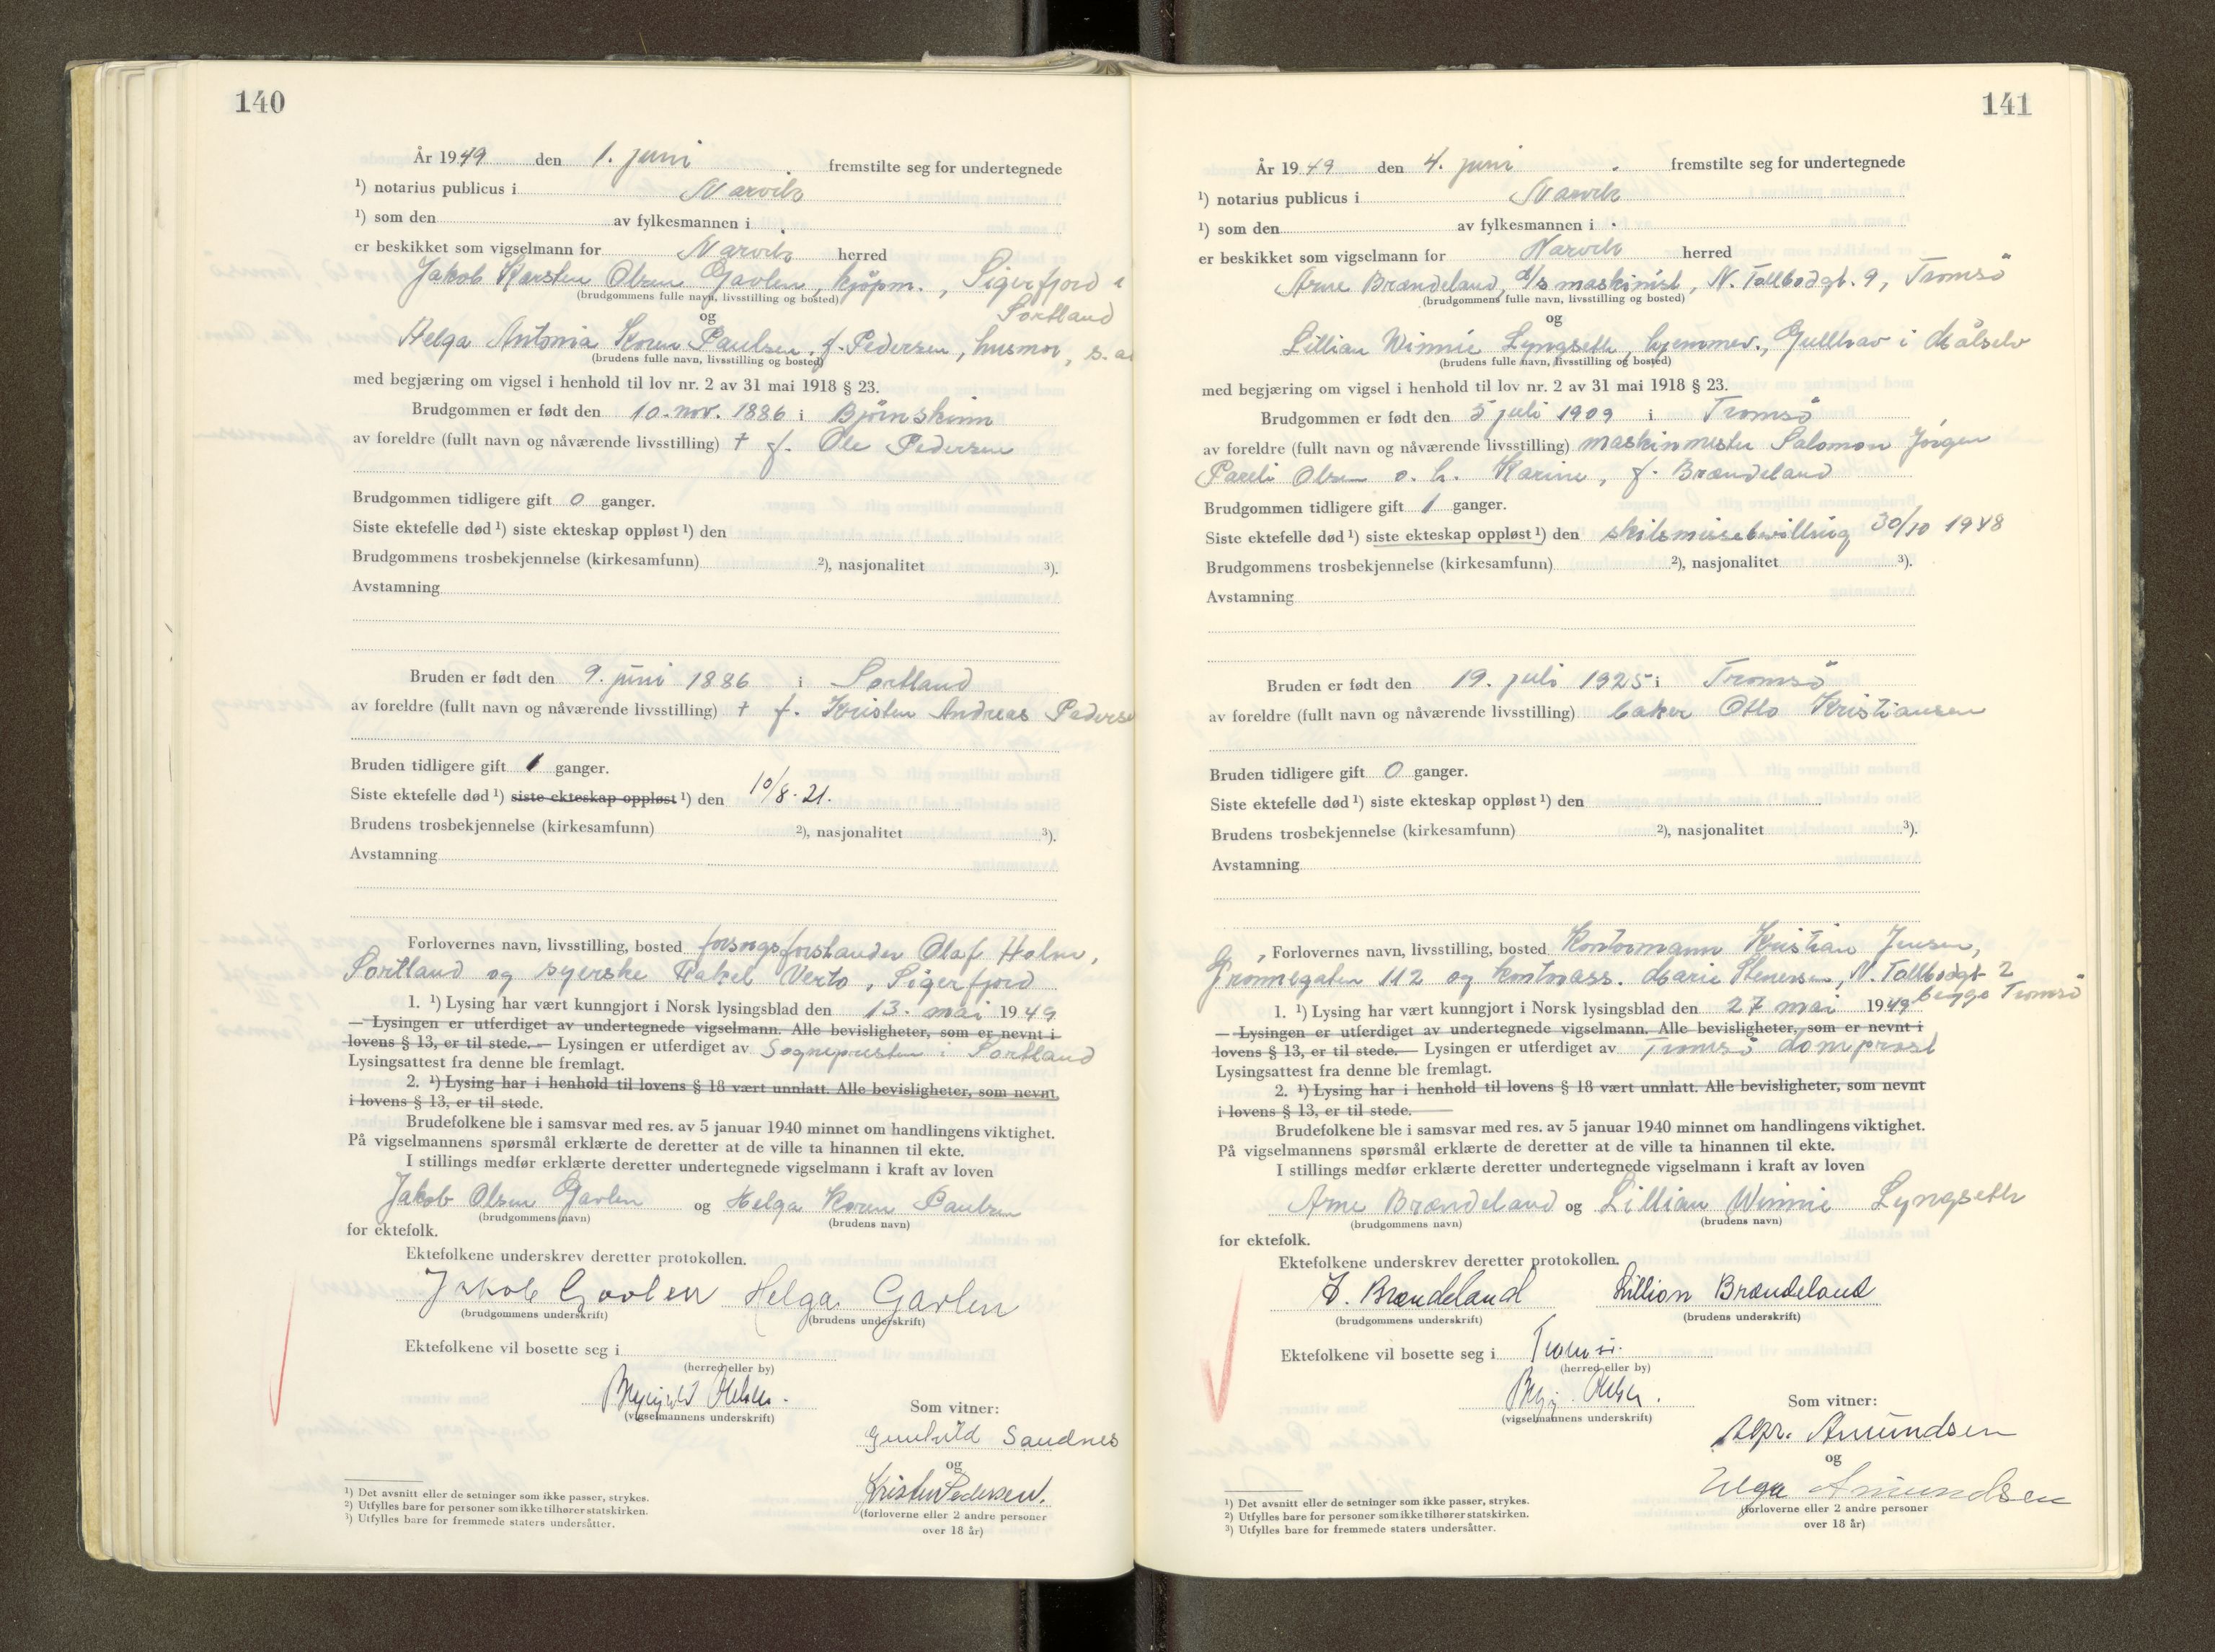 140
År 1949 den 1. juni fremstilte seg for undertegnede
¹) notarius publicus i Narvik
¹) som den av fylkesmannen i
er beskikket som vigselmann for Narvik herred
Jakob Karsten Olsen Gavlen, kjøpm., Sigerfjord i
(brudgommens fulle navn, livsstilling og bosted)
Sortland
og
Helga Antonia Koren Paulsen, f. Pedersen, husmor, s.
(brudens fulle navn, livsstilling og bosted)
med begjæring om vigsel i henhold til lov nr. 2 av 31 mai 1918 § 23.
Brudgommen er født den 10. nov. 1886 i Bjørnskinn
av foreldre (fullt navn og nåværende livsstilling) † f. Ole Pedersen
Brudgommen tidligere gift 0 ganger.
Siste ektefelle død ¹) siste ekteskap oppløst ¹) den
Brudgommens trosbekjennelse (kirkesamfunn) ²), nasjonalitet ³).
Avstamning
Bruden er født den 9. juni 1886 i Sortland
av foreldre (fullt navn og nåværende livsstilling) † f. Kristen Andreas
Bruden tidligere gift 1 ganger.
Siste ektefelle død ¹) siste ekteskap oppløst ¹) den 10/8. 21.
Brudens trosbekjennelse (kirkesamfunn) ²), nasjonalitet ³).
Avstamning
Forlovernes navn, livsstilling, bosted forsorgsforstander Olaf Holm,
Sortland og syerske Rakel Verto, Sigerfjord
1. ¹) Lysing har vært kunngjort i Norsk lysingsblad den 13. mai 1949
— Lysingen er utferdiget av undertegnede vigselmann. Alle bevisligheter, som er nevnt i
lovens § 13, er til stede. — Lysingen er utferdiget av Sognepresten i Sortland
Lysingsattest fra denne ble fremlagt.
2. ¹) Lysing har i henhold til lovens § 18 vært unnlatt. Alle bevisligheter, som nevnt,
i lovens § 13, er til stede.
Brudefolkene ble i samsvar med res. av 5 januar 1940 minnet om handlingens viktighet.
På vigselmannens spørsmål erklærte de deretter at de ville ta hinannen til ekte.
I stillings medfør erklærte deretter undertegnede vigselmann i kraft av loven
Jakob Olsen Gavlen og Helga Koren Paulsen
(brudgommens navn) (brudens navn)
for ektefolk.
Ektefolkene underskrev deretter protokollen.
Jakob Gavlen Helga Gavlen
(brudgommens underskrift) (brudens underskrift)
Ektefolkene vil bosette seg i
(herred eller by)
(vigselmannens underskrift)
Som vitner:
Gunhild Sandnes
og
Kristen Pedersen.
(forloverne eller 2 andre personer
over 18 år)
¹) Det avsnitt eller de setninger som ikke passer, strykes.
²) Utfylles bare for personer som ikke tilhører statskirken.
³) Utfylles bare for fremmede staters undersåtter.
141
År 1949 den 4. juni fremstilte seg for undertegnede
¹) notarius publicus i Narvik
¹) som den av fylkesmannen i
er beskikket som vigselmann for Narvik herred
Arne Brændeland, d/s maskinist, N. Tollbodgt. 9, Tromsö
(brudgommens fulle navn, livsstilling og bosted)
og
Lillian Winnie Lyngseth, hjemmev., Gullhav i Målselv
(brudens fulle navn, livsstilling og bosted)
med begjæring om vigsel i henhold til lov nr. 2 av 31 mai 1918 § 23.
Brudgommen er født den 5 juli 1909 i Tromsö
av foreldre (fullt navn og nåværende livsstilling) maskinmester Salomon Jörgen
Pareli Olsen o. h. Karine, f. Brændeland
Brudgommen tidligere gift 1 ganger.
Siste ektefelle død ¹) siste ekteskap oppløst ¹) den skilsmissebevilling 30/10 1948
Brudgommens trosbekjennelse (kirkesamfunn) ²), nasjonalitet ³).
Avstamning
Bruden er født den 19. juli 1925 i Tromsö
av foreldre (fullt navn og nåværende livsstilling) baker Otto Kristiansen
Bruden tidligere gift 0 ganger.
Siste ektefelle død ¹) siste ekteskap oppløst ¹) den
Brudens trosbekjennelse (kirkesamfunn) ²), nasjonalitet ³).
Avstamning
Forlovernes navn, livsstilling, bosted Kontormann Kristian Jensen,
Grønnegaten 112 og kontorass. Marie Stenersen, N. Tollbodgt 2
begge Tromsö
1. ¹) Lysing har vært kunngjort i Norsk lysingsblad den 27 mai 1949
— Lysingen er utferdiget av undertegnede vigselmann. Alle bevisligheter, som er nevnt i
lovens § 13, er til stede. — Lysingen er utferdiget av Tromsö domprost
Lysingsattest fra denne ble fremlagt.
2. ¹) Lysing har i henhold til lovens § 18 vært unnlatt. Alle bevisligheter, som nevnt
i lovens § 13, er til stede.
Brudefolkene ble i samsvar med res. av 5 januar 1940 minnet om handlingens viktighet.
På vigselmannens spørsmål erklærte de deretter at de ville ta hinannen til ekte.
I stillings medfør erklærte deretter undertegnede vigselmann i kraft av loven
Arne Brændeland og Lillian Winnie Lyngseth
(brudgommens navn) (brudens navn)
for ektefolk.
Ektefolkene underskrev deretter protokollen.
A. Brændeland Lillian Brændeland
(brudgommens underskrift) (brudens underskrift)
Ektefolkene vil bosette seg i Tromsö.
(herred eller by)
(vigselmannens underskrift)
Som vitner:
Amundsen
og
Helga Amundsen
(forloverne eller 2 andre personer
over 18 år)
¹) Det avsnitt eller de setninger som ikke passer, strykes.
²) Utfylles bare for personer som ikke tilhører statskirken.
³) Utfylles bare for fremmede staters undersåtter.